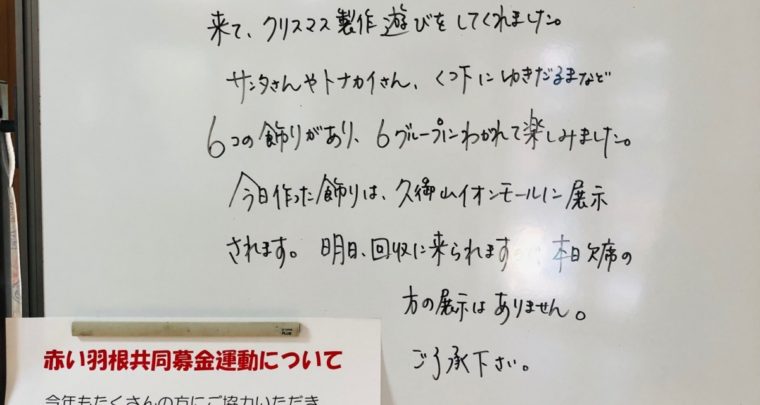 来て、クリスマス製作遊びをしてくれました。
サンタさんやトナカイさん、くつ下にゆきだるまなど
6つの飾りがあり、6グループにわかれて楽しみました。
今日作った飾りは、久御山イオンモールに展示
されます。明日、回収に来られます 本日欠席の
方の展示はありません。
ご了承下さい。
赤い羽根共同募金運動について
今年もたくさんの方にご協力いただき